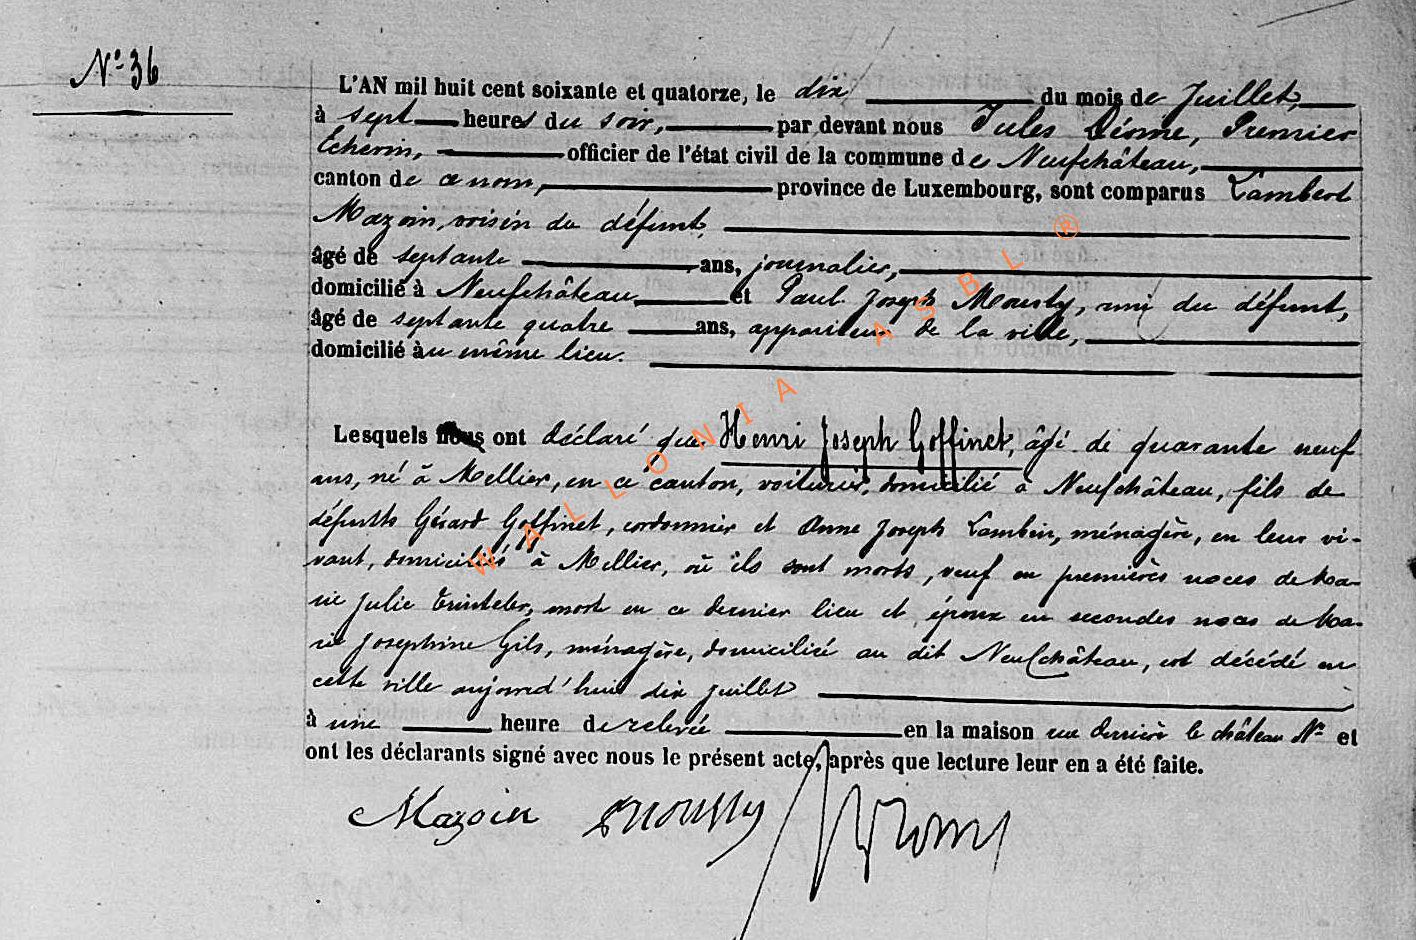 N° 36
L'AN mil huit cent soixante et quatorze, le dix du mois de Juillet,
à sept heures du soir, par devant nous Jules Déome, Premier
Echevin, officier de l'état civil de la commune de Neufchâteau,
canton de ce nom, province de Luxembourg, sont comparus Lambert
Mazoin, voisin du défunt,
âgé de septante ans, journalier,
domicilié à Neufchâteau et Paul Joseph Mousty, ami du défunt,
âgé de septante quatre ans, appariteur de la ville,
domicilié au même lieu.
Lesquels ont déclaré que Henri Joseph Goffinet, âgé de quarante neuf
ans, né à Mellier, en ce canton, voiturier, domicilié à Neufchâteau, fils de
défunts Gérard Goffinet, cordonnier et Anne Joseph Lambin, ménagère, en leur vi-
vant, domiciliés à Mellier, où ils sont morts, veuf en premières noces de Ma-
rie Julie, morte en ce dernier lieu et époux en secondes noces de Ma-
rie Josephine Gils, ménagère, domiciliée au dit Neufchâteau, est décédé en
cette ville aujourd'hui dix juillet
à une heure de relevée en la maison rue derrière le château N° et
ont les déclarants signé avec nous le présent acte, après que lecture leur en a été faite.
Mazoin Mousty
WALLONIA ASBL ®